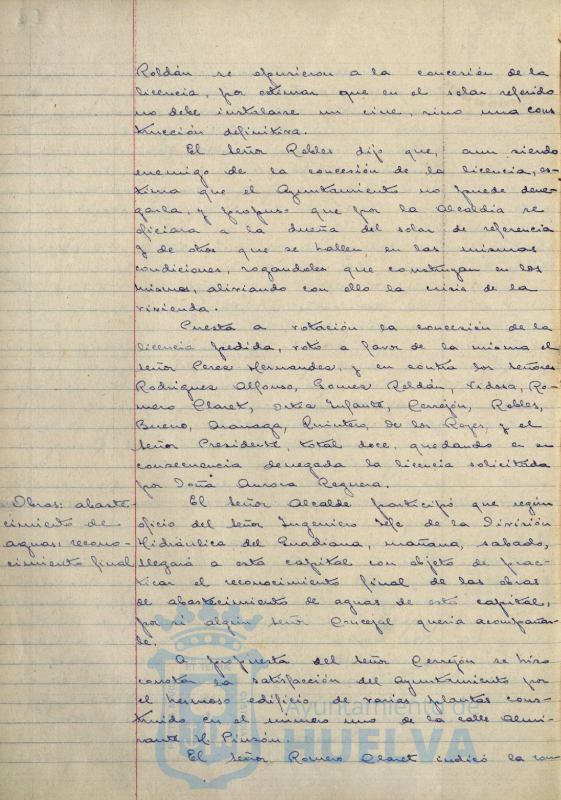 Roldán se opusieron a la concesión de la
licencia, por estimar que en el solar referido
no debe instalarse un cine, sino una cons
trucción definitiva.
El Señor Robles dijo que, aun siendo
enemigo de la concesión de la licencia, es-
tima que el Ayuntamiento no puede dene-
garla, y propuso que por la Alcaldía se
oficiara a la dueña del solar de referencia
y de otros que se hallen en las mismas
condiciones, rogandoles que construyan en los
mismos, aliviando con ello la crisis de la
vivienda.
Puesta a votación la concesión de la
licencia pedida, votó a favor de la misma el
Señor Perez Hernandez, y en contra los Señores
Rodriguez Alfonso, Gomez Roldán, Vidosa, Ro-
mero Claret, Ortiz Infante, Cerrejón, Robles,
Bueno, Aranaga, Quintero, de los Reyes, y el
Señor Presidente, total doce, quedando en su
consecuencia denegada la licencia solicitada
por Doña Aurora Reguera.
Obras: abaste-
cimiento de
aguas: recono-
cimiento final
El Señor Alcalde participó que según
oficio del Señor Ingeniero Jefe de la División
Hidráulica del Guadiana, mañana, sabado,
llegará a esta capital con objeto de prac-
ticar el reconocimiento final de las obras
de abastecimiento de aguas de esta capital,
por si algún Señor Concejal quería acompañar-
le.
A propuesta del Señor Cerrejón se hizo
constar la satisfacción del Ayuntamiento por
el hermoso edificio de varias plantas cons-
truido en el número uno de la calle Almi-
rante H. Pinzón.
El Señor Romero Claret indicó la con
Ayuntamiento de
HUELVA